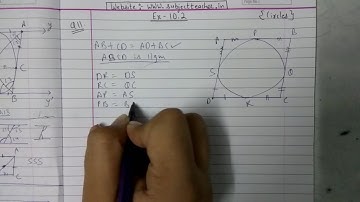 Website:- www.subjectteacher.in
Ex-10.2
{Circles}
Q11
AB+CD = AD+BC
ABCD is llgm
DR = DS
RC = QC
AP = AS
PB =
A
P
B
S
Q
D
R
C
SSS